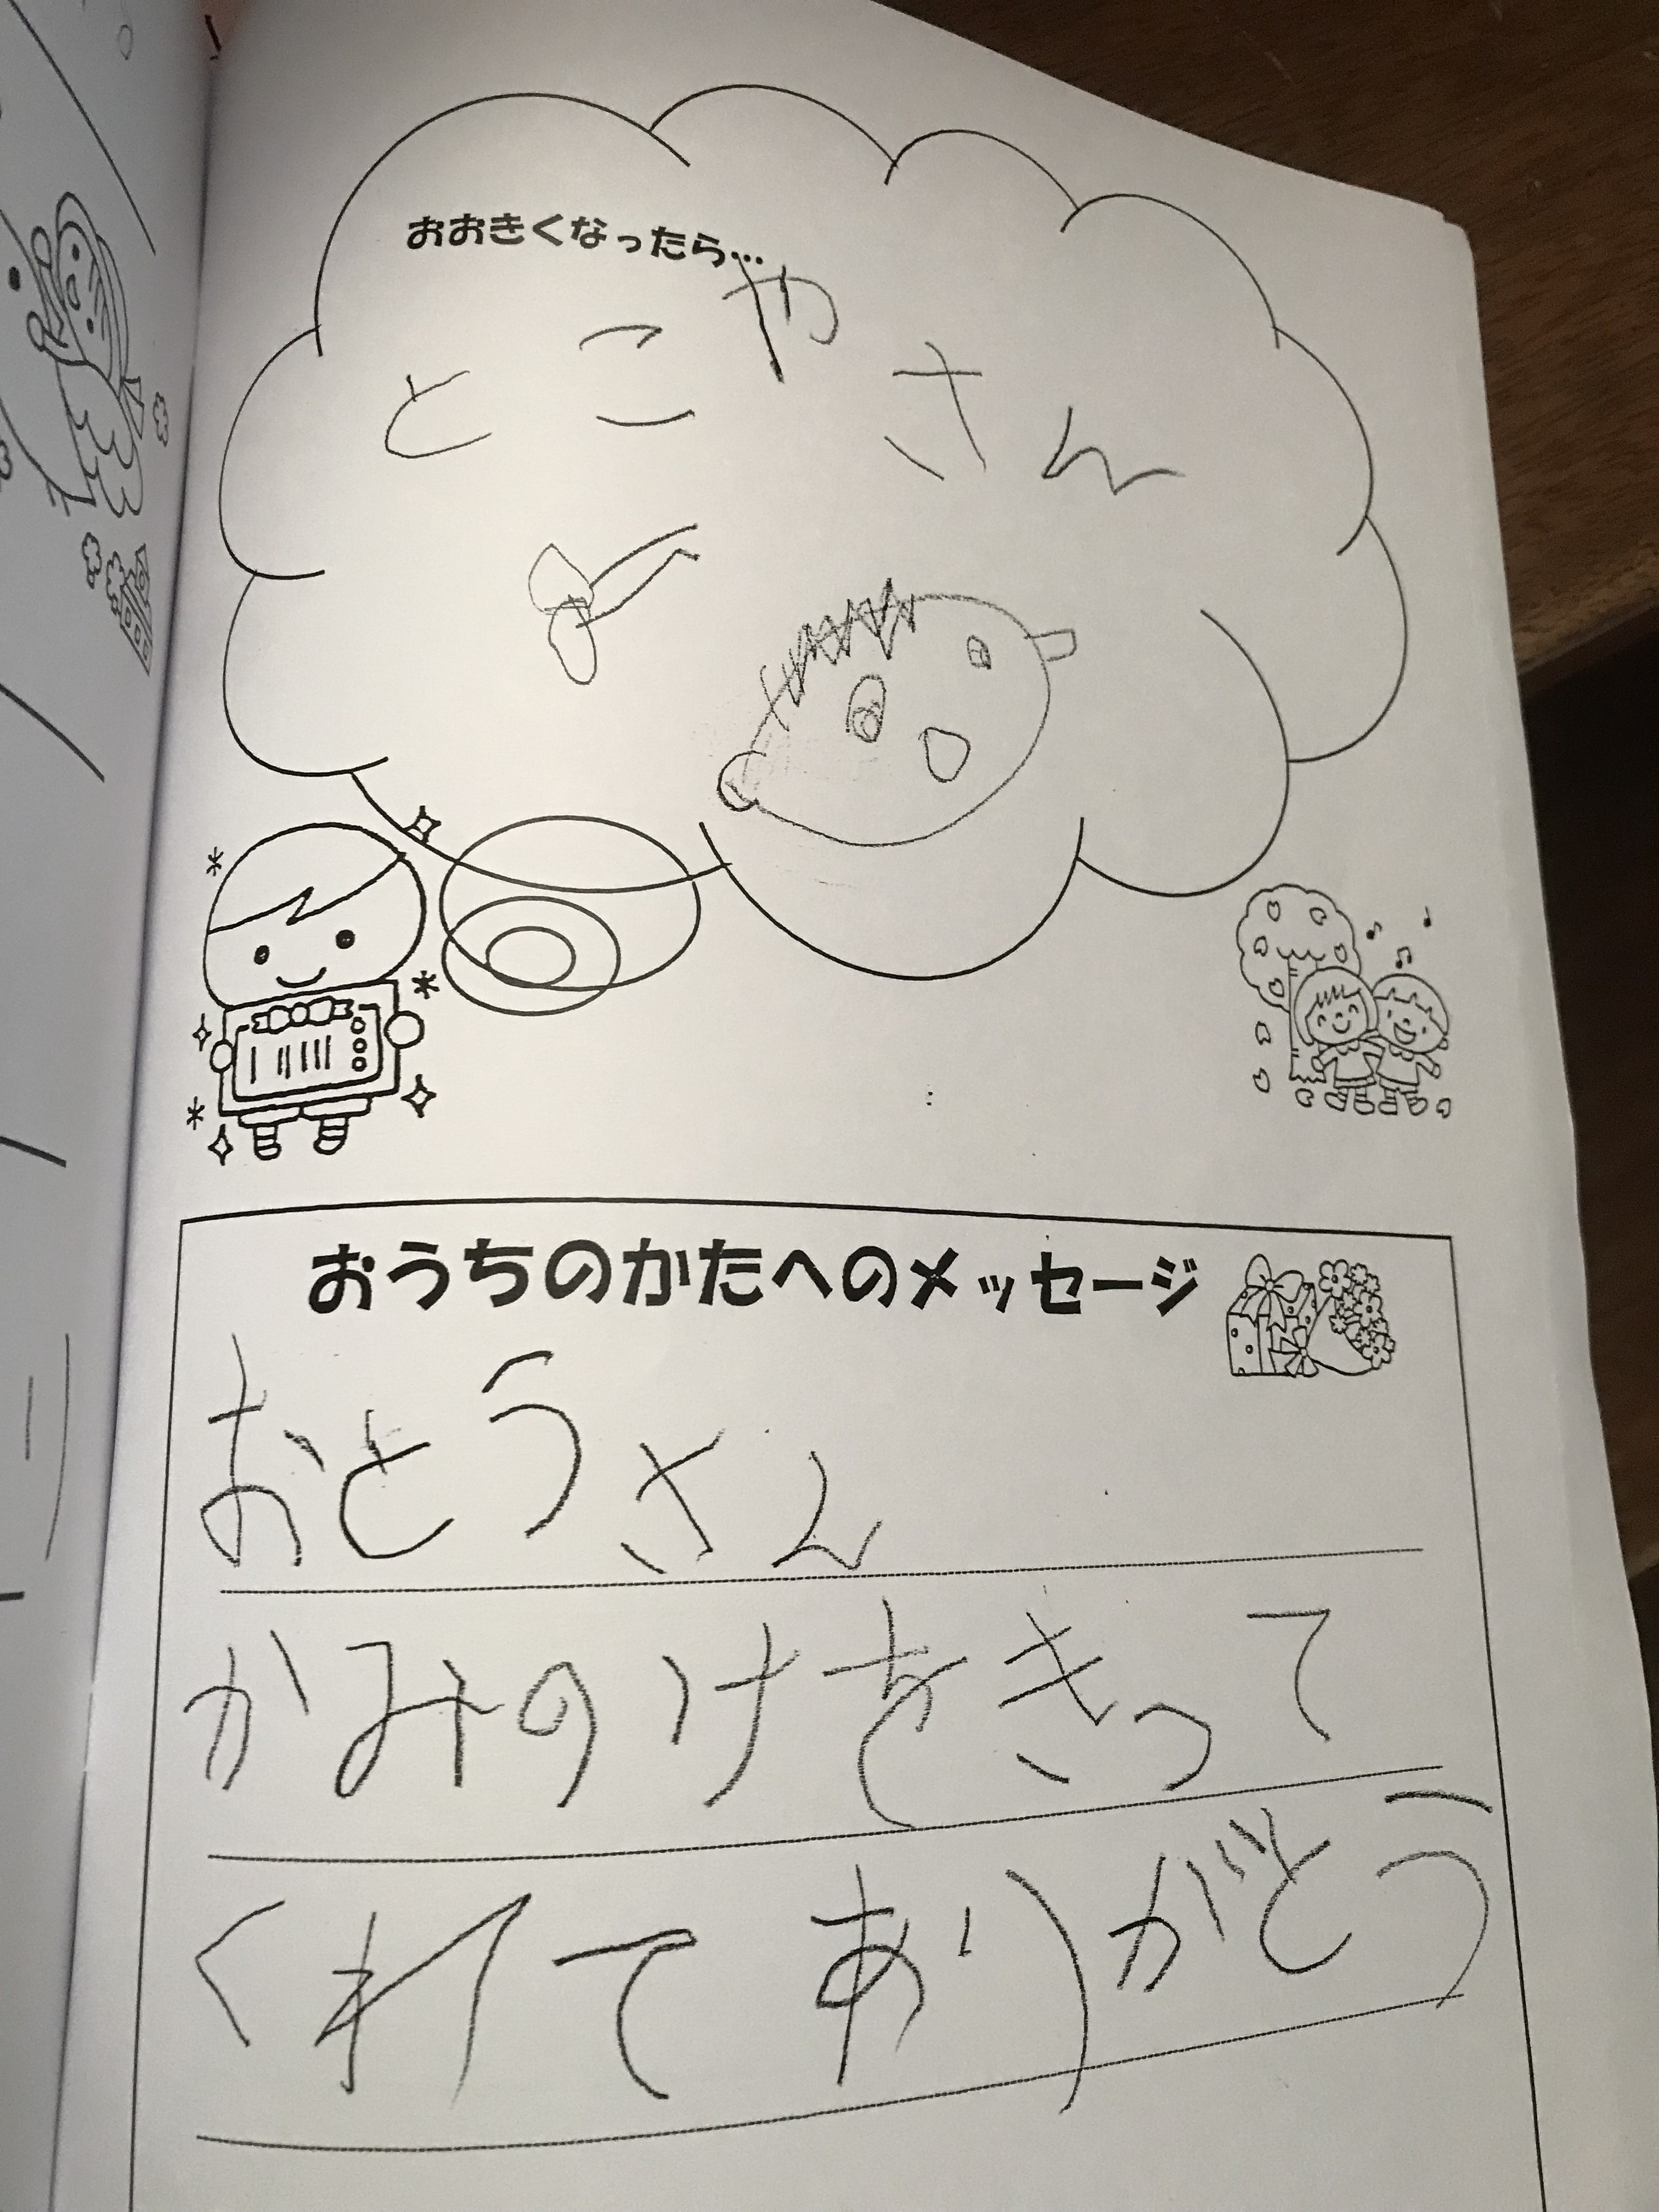 おおきくなったら…
とこやさん
おうちのかたへのメッセージ
おとうさん
かみのけをきって
くれて ありがとう